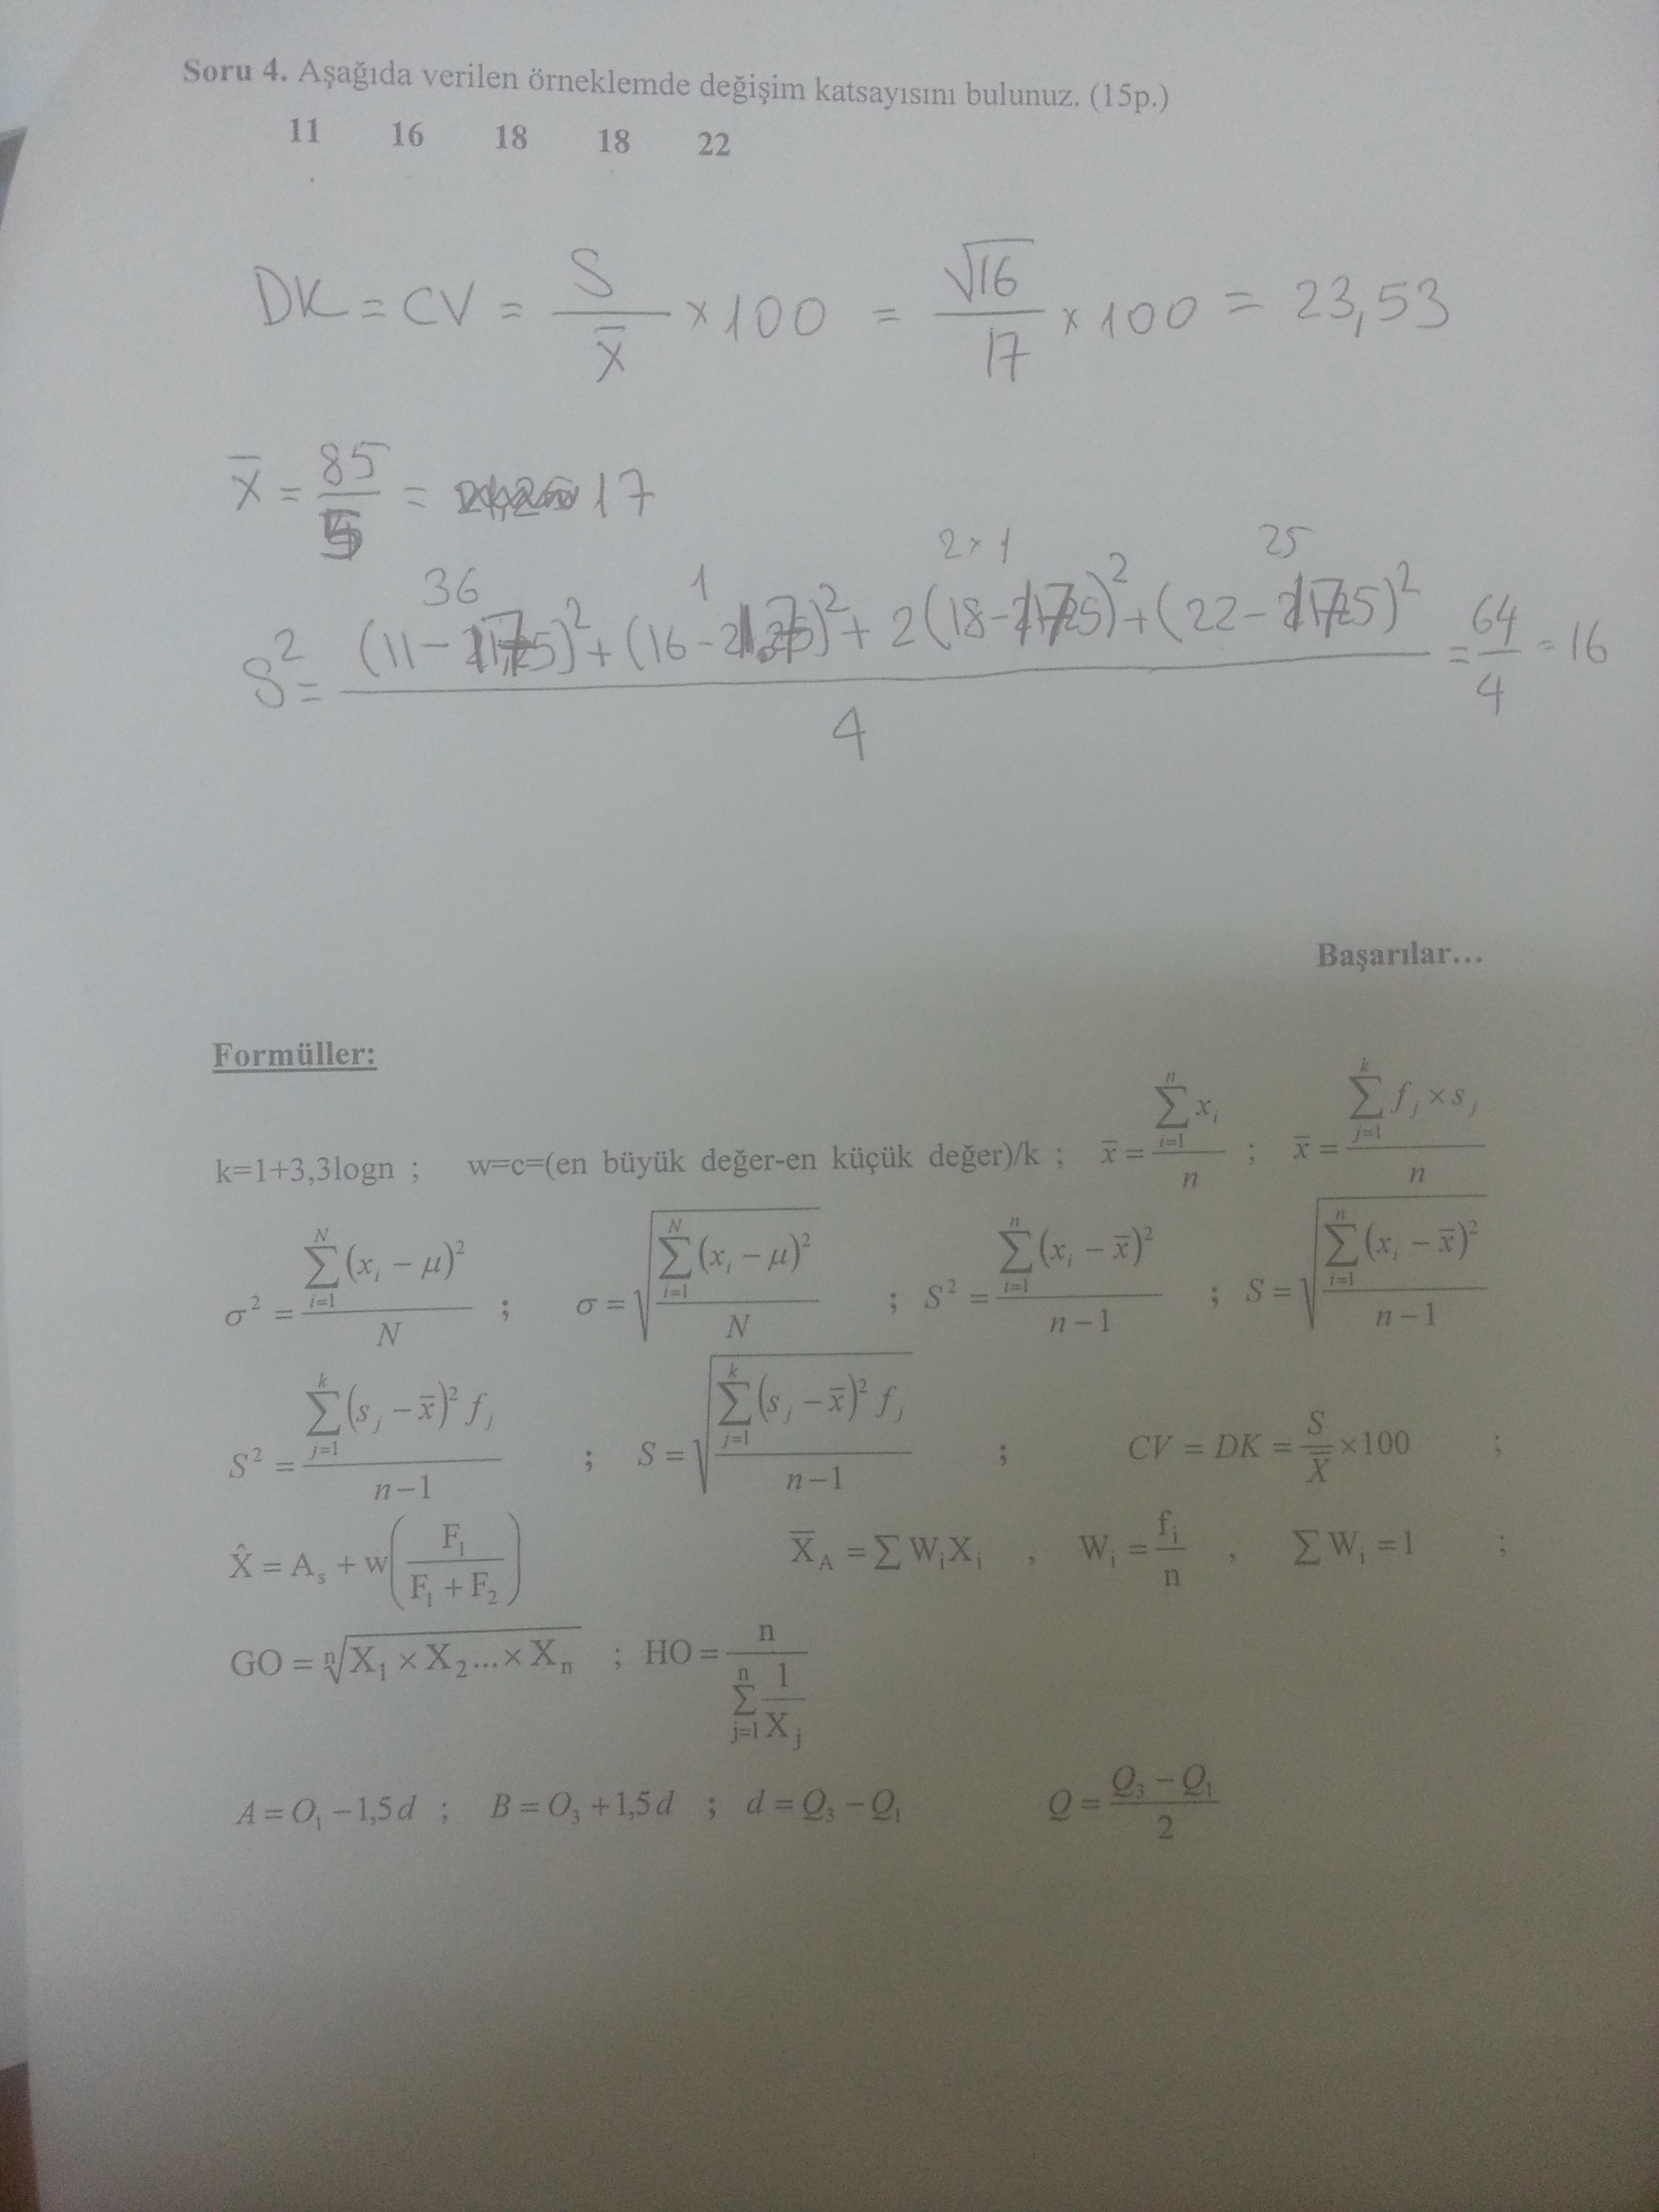 Soru 4. Aşağıda verilen örneklemde değişim katsayısını bulunuz. (15p.)
11 16 18 18 22
DK = CV = S / x̄ × 100 = √16 / 17 × 100 = 23,53
x̄ = 85 / 5 = 17
36 1 2×1 25
S² = (11 – 17)² + (16 – 17)² + 2(18 – 17)² + (22 – 17)² / 4 = 64 / 4 = 16
Başarılar...
Formüller:
k=1+3,3logn ; w=c=(en büyük değer-en küçük değer)/k ; x̄ = ∑_{i=1}^{n} x_i / n ; x̄ = ∑_{j=1}^{k} f_j × s_j / n
σ² = ∑_{i=1}^{N} (x_i – μ)² / N ; σ = √(∑_{i=1}^{N} (x_i – μ)² / N) ; S² = ∑_{i=1}^{n} (x_i – x̄)² / n–1 ; S = √(∑_{i=1}^{n} (x_i – x̄)² / n–1)
S² = ∑_{j=1}^{k} (s_j – x̄)² f_j / n–1 ; S = √(∑_{j=1}^{k} (s_j – x̄)² f_j / n–1) ; CV = DK = S / X̄ ×100 ;
X̂ = A_s + w(F_1 / F_1 + F_2) X̄_A = ∑ W_i X_i , W_i = f_i / n , ∑ W_i = 1 ;
GO = ⁿ√X_1 × X_2 ... × X_n ; HO = n / ∑_{j=1}^{n} 1 / X_j
A = O_1 – 1,5d ; B = O_3 + 1,5d ; d = Q_3 – Q_1 Q = Q_3 – Q_1 / 2